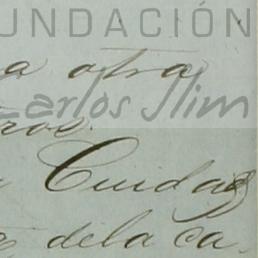 FUNDACIÓN
a otra
Carlos Slim
ros.
Cuidad
dela ca-